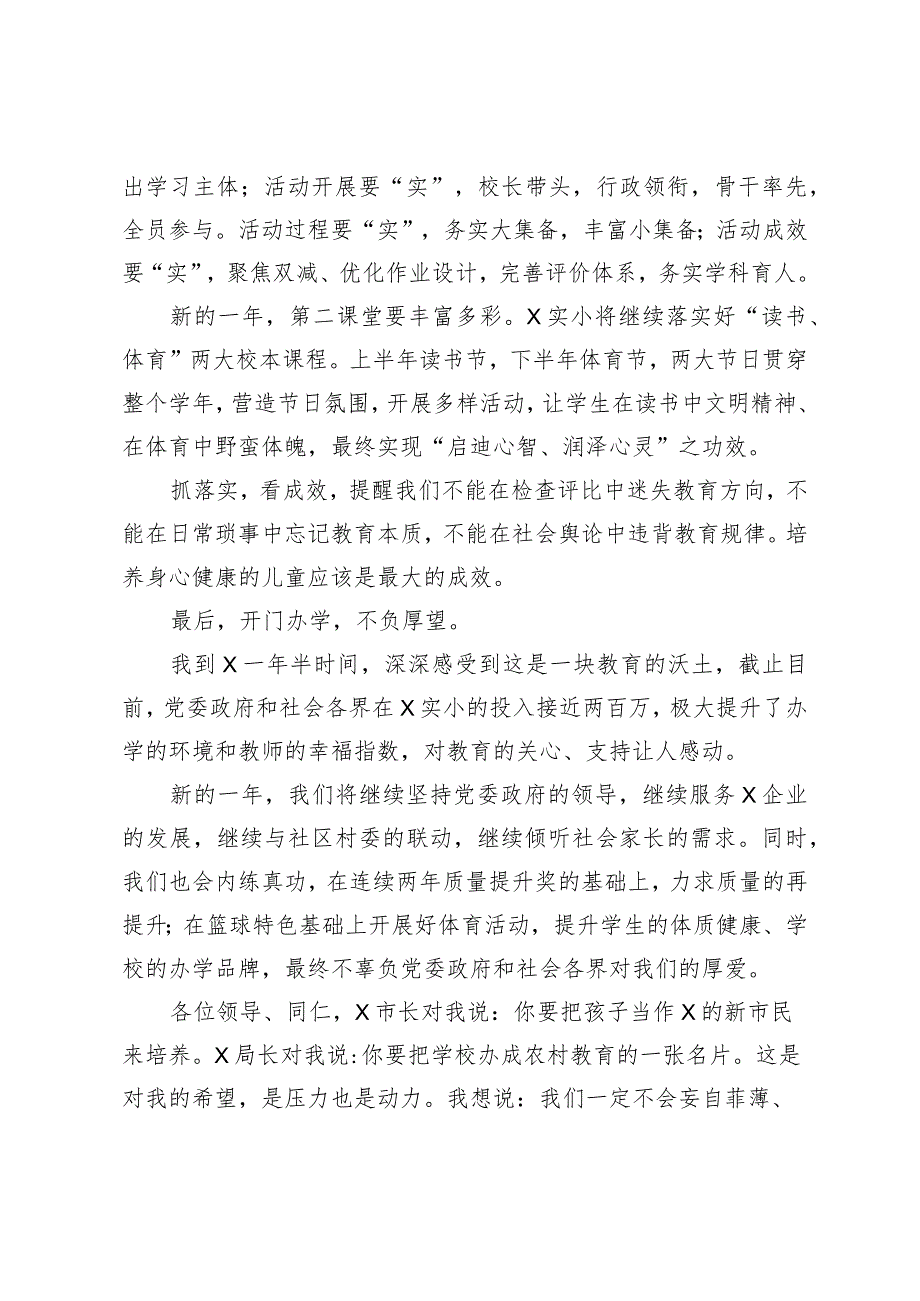 出学习主体；活动开展要“实”，校长带头，行政领衔，骨干率先，
全员参与。活动过程要“实”，务实大集备，丰富小集备；活动成效
要“实”，聚焦双减、优化作业设计，完善评价体系，务实学科育人。
新的一年，第二课堂要丰富多彩。X实小将继续落实好“读书、
体育”两大校本课程。上半年读书节，下半年体育节，两大节日贯穿
整个学年，营造节日氛围，开展多样活动，让学生在读书中文明精神、
在体育中野蛮体魄，最终实现“启迪心智、润泽心灵”之功效。
抓落实，看成效，提醒我们不能在检查评比中迷失教育方向，不
能在日常琐事中忘记教育本质，不能在社会舆论中违背教育规律。培
养身心健康的儿童应该是最大的成效。
最后，开门办学，不负厚望。
我到X一年半时间，深深感受到这是一块教育的沃土，截止目
前，党委政府和社会各界在X实小的投入接近两百万，极大提升了办
学的环境和教师的幸福指数，对教育的关心、支持让人感动。
新的一年，我们将继续坚持党委政府的领导，继续服务X企业
的发展，继续与社区村委的联动，继续倾听社会家长的需求。同时，
我们也会内练真功，在连续两年质量提升奖的基础上，力求质量的再
提升；在篮球特色基础上开展好体育活动，提升学生的体质健康、学
校的办学品牌，最终不辜负党委政府和社会各界对我们的厚爱。
各位领导、同仁，X市长对我说：你要把孩子当作X的新市民
来培养。X局长对我说:你要把学校办成农村教育的一张名片。这是
对我的希望，是压力也是动力。我想说：我们一定不会妄自菲薄、